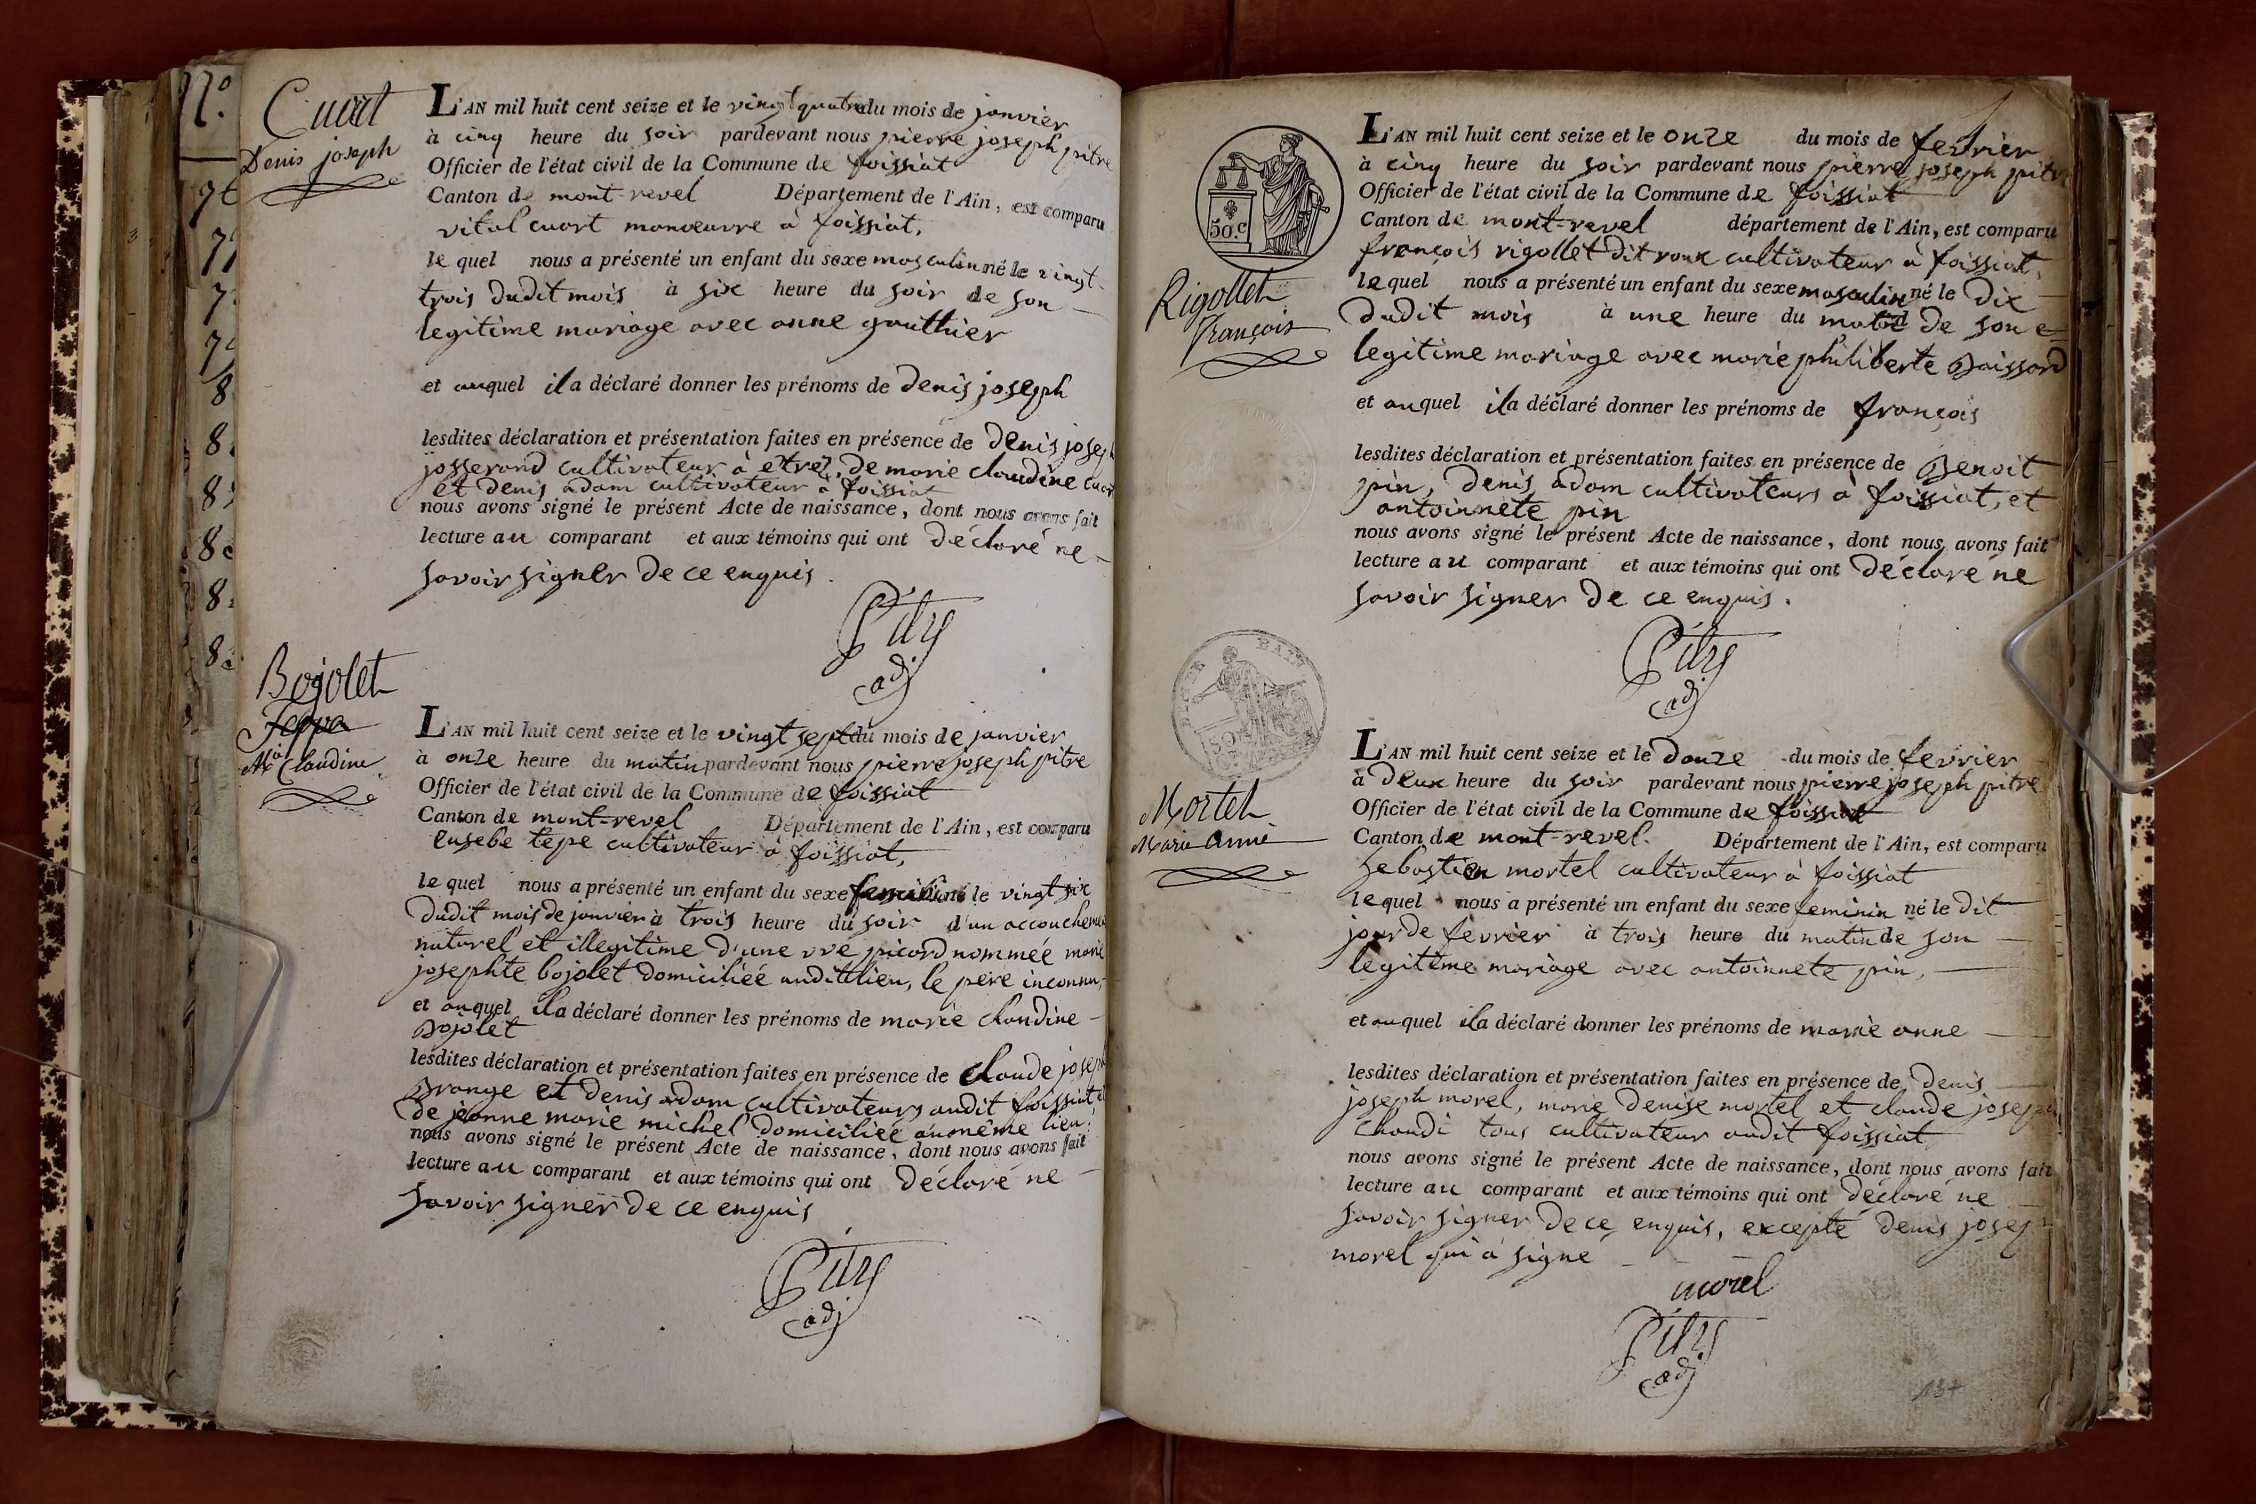 Cuort
Denis joseph
L'AN mil huit cent seize et le vingt quatre du mois de janvier
à cinq heure du soir pardevant nous pierre joseph pitre
Officier de l'état civil de la Commune de foissiat
Canton de mont-revel Département de l'Ain, est comparu
vital cuort manoeuvre à foissiat,
le quel nous a présenté un enfant du sexe masculin né le vingt-
trois dudit mois à six heure du soir de son
legitime mariage avec anne gauthier
et auquel il a déclaré donner les prénoms de denis joseph
lesdites déclaration et présentation faites en présence de denis joseph
josserand cultivateur à etrez, de marie claudine cuort
et denis adam cultivateur à foissiat
nous avons signé le présent Acte de naissance, dont nous avons fait
lecture au comparant et aux témoins qui ont déclaré ne
savoir signer de ce enquis.
Pitre
adj
Bojolet
Teppa
Mie Claudine
L'AN mil huit cent seize et le vingt sept du mois de janvier
à onze heure du matin pardevant nous pierre joseph pitre
Officier de l'état civil de la Commune de foissiat
Canton de mont-revel Département de l'Ain, est comparu
eusebe tepe cultivateur à foissiat,
le quel nous a présenté un enfant du sexe feminin né le vingt six
dudit mois de janvier à trois heure du soir d'un accouchement
naturel et illegitime d'une vve picard nommée marie
josephte bojolet domiciliée audit lieu, le pere inconnu,
et auquel il a déclaré donner les prénoms de marie claudine
Bojolet
lesdites déclaration et présentation faites en présence de claude joseph
Brange et denis adam cultivateurs audit foissiat et
de jeanne marie michel domiciliée au même lieu.
nous avons signé le présent Acte de naissance, dont nous avons fait
lecture au comparant et aux témoins qui ont déclaré ne
savoir signer de ce enquis
Pitre
adj
50.c
Rigollet
François
L'AN mil huit cent seize et le onze du mois de fevrier
à cinq heure du soir pardevant nous pierre joseph pitre
Officier de l'état civil de la Commune de foissiat
Canton de mont-revel département de l'Ain, est comparu
françois rigollet dit roux cultivateur à foissiat,
le quel nous a présenté un enfant du sexe masculin né le dix
dudit mois à une heure du matin de son
legitime mariage avec marie philiberte Boissard
et auquel il a déclaré donner les prénoms de françois
lesdites déclaration et présentation faites en présence de Benoit
pin, denis adam cultivateurs à foissiat, et
antoinnete pin
nous avons signé le présent Acte de naissance, dont nous avons fait
lecture au comparant et aux témoins qui ont déclaré ne
savoir signer de ce enquis.
Pitre
adj
Mortel
Marie anne
L'AN mil huit cent seize et le douze du mois de fevrier
à deux heure du soir pardevant nous pierre joseph pitre
Officier de l'état civil de la Commune de foissiat
Canton de mont-revel. Département de l'Ain, est comparu
sebastien mortel cultivateur à foissiat
le quel nous a présenté un enfant du sexe feminin né le dit
jour de fevrier à trois heure du matin de son
legitime mariage avec antoinnete pin,
et auquel il a déclaré donner les prénoms de marie anne
lesdites déclaration et présentation faites en présence de denis
joseph morel, marie denise mortel et claude joseph
chaudi tous cultivateur audit foissiat
nous avons signé le présent Acte de naissance, dont nous avons fait
lecture au comparant et aux témoins qui ont déclaré ne
savoir signer de ce enquis, excepté denis joseph
morel qui à signé
morel
Pitre
adj
137